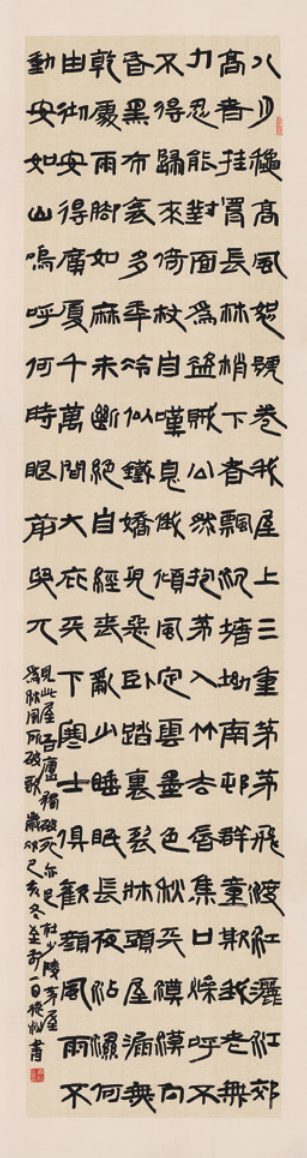 八月穐高風怒號卷我屋上三重茅茅飛渡江灑江郊
高者挂罥長林梢下者飄沉塘坳南邨群童欺我老無
力忍能對面爲盜賊公然抱茅入竹去唇焦口燥呼不
不得歸來倚杖自嘆息俄傾風定雲墨色秋天漠漠向
昏黑布衾多年冷似鐵嬌兒惡臥踏裏裂牀頭屋漏無
乾處雨脚如麻未斷絕自經喪亂少睡眠長夜沾濕何
由彻安得廣厦千萬間大庇天下寒士俱歡顏風雨不
動安如山嗚呼何時眼前突兀
見此屋吾廬獨破死亦足杜少陵茅屋
爲秋風所破歌歲次己亥冬至前一日書